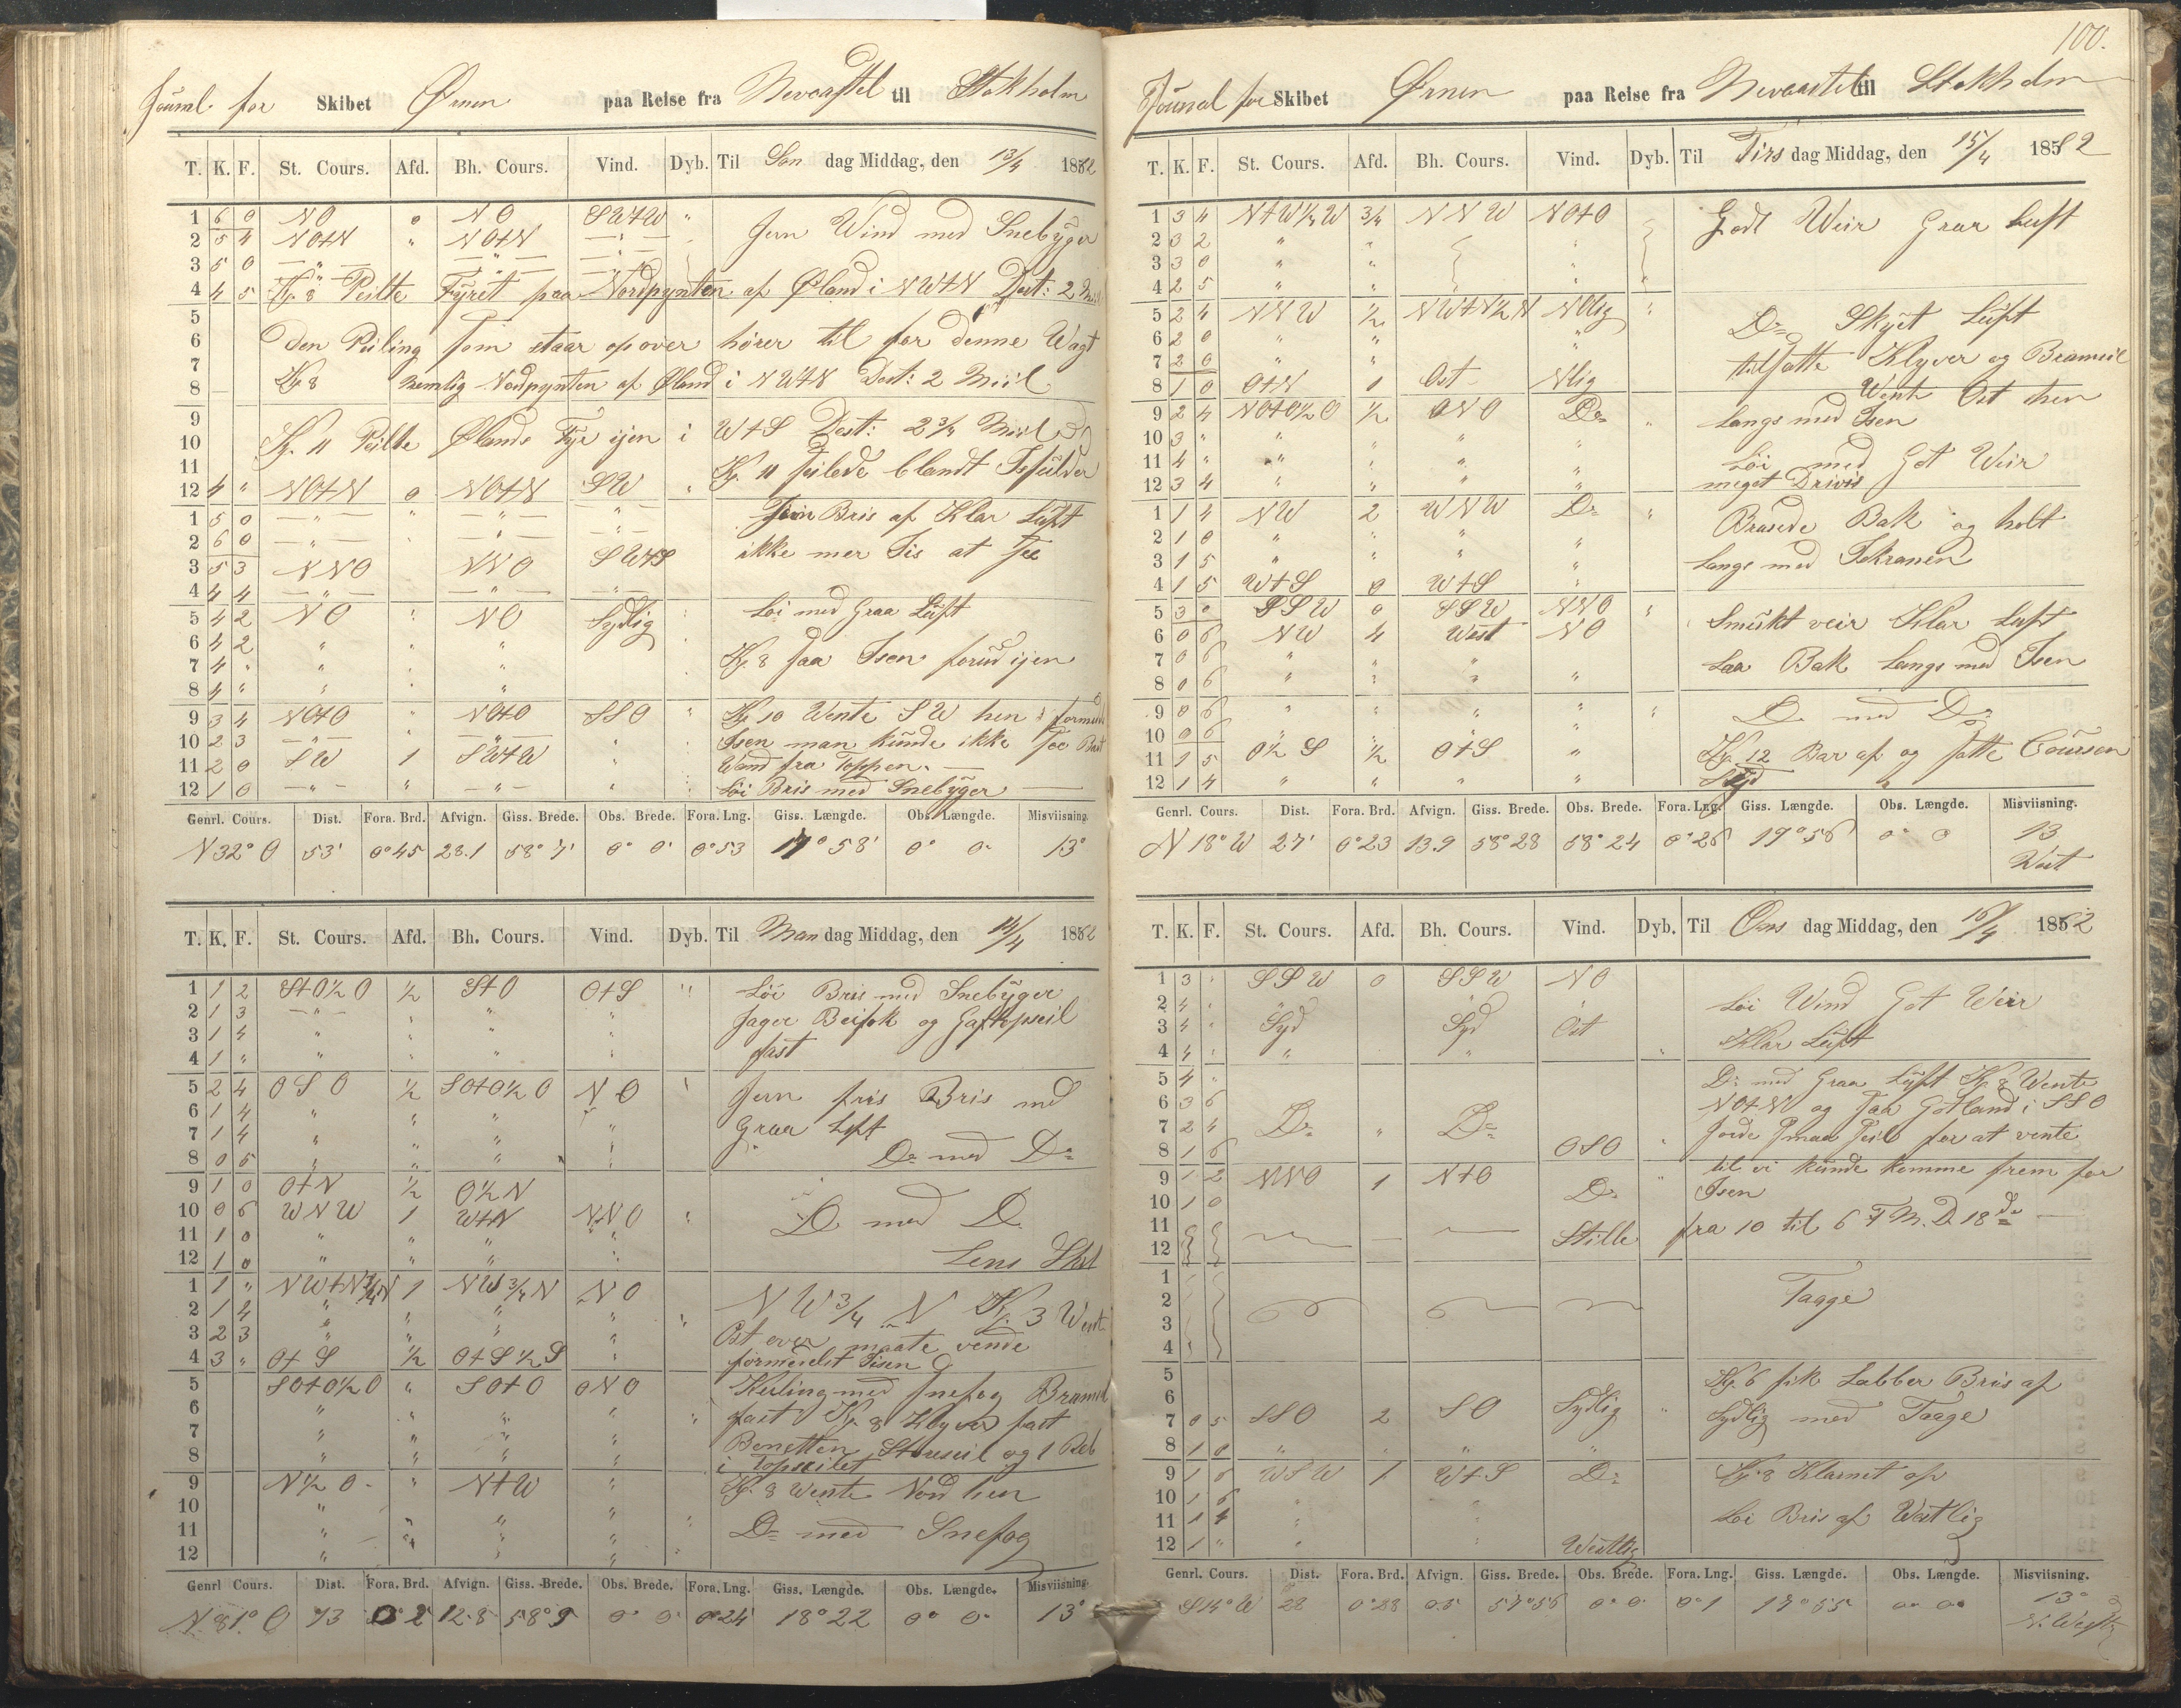 Journal for Skibet Ørnen paa Reise fra Nevcastel til Stokholm
T. K. F. St. Cours. Afd. Bh. Cours. Vind. Dyb. Til Søn dag Middag, den 13/4 1862
1 6 0 NO 0 NO SWtW " Jevn Wind med Snebÿger
2 5 4 NOtN " NOtN — " —
3 5 0 — " — — " — — " —
4 4 5 Kl. 8 Peilte Fyret paa Nordpynten af Øland i NWtN Dest: 2 Miil
5
6 Den Peiling som staar opover hører til for denne Wagt
7
8 Kl 8 nemlig Nordpynten af Øland i NWtN Dest: 2 Miil
9
10 Kl. 11 Peilte Ølands Fyr igen i WtS Dest: 2 3/4 Miil
11 Kl. 11 seilede blandt Isfulder
12 4 " NOtN 0 NOtN SW "
1 5 0 — " — " — " — — " — Jevn Bris af Klar Lüft
2 6 0 — " — — " — — " — ikke mer Iis at see
3 5 3 NNO NNO SWtS
4 4 4 — " — — " — — " —
5 4 2 NO " NO Sydlig Løi med Graa Lüft
6 4 2 " " "
7 4 " " " " Kl. 8 saa Isen forud igen
8 4 " " " "
9 3 4 NOtO " NOtO SSO " Kl 10 Wente SW hen formed
10 2 3 — " — — " — " Isen man kunde ikke see Bart
11 2 0 SW 1 SWtW " Wand fra Toppen. —
12 1 0 — " — " — " — " Løi Bris med Snebÿger —
Genrl. Cours. Dist. Fora. Brd. Afvign. Giss. Brede. Obs. Brede. Fora. Lng. Giss. Længde. Obs. Længde. Misviisning.
N 32° O 53' 0°45 28.1 58° 7' 0° 0' 0°53 17° 58' 0° 0' 13°
T. K. F. St. Cours. Afd. Bh. Cours. Vind. Dyb. Til Man dag Middag, den 14/4 1862
1 1 2 StO½O ½ StO OtS " Løi Bris med Snebÿger
2 1 3 — " — " " " Jager Beifok og Gaftopseil
3 1 4 " " " "
4 1 " " " " " fast
5 2 4 OSO ½ SOtO½O NO " Jevn friis Bris med
6 1 4 " " " " Graa Luft
7 1 4 " " " "
8 0 5 " " " " Do med Do
9 1 0 OtN ½ O½N
10 0 6 WNW 1 WtN NNO " D med D
11 1 0 " " " "
12 1 0 " " " " Lens Skib
1 1 " NWtN¾N 1 NW¾N NO NW¾N Kl. 3 Went
2 1 4 " " " " "
3 2 3 " " " " Ost over maate vende
4 3 " OtS ½ OtS½S " formedelst Iisen
5 SOtO½O " SOtO ONO Keiling med snefog Bramseil
6 " " " " " fast Kl. 8 Klyver fast
7 " " " " Benetten Storeseil og 1 Reb
8 " " " " i Topseilet
9 N½O " NtW " Kl. 8 Wente Nord hen
10 " "
11 " " " " Do med Snefog
12 " " "
Genrl Cours. Dist. Fora. Brd. Afvign. Giss. Brede. Obs. Brede. Fora. Lng. Giss. Længde. Obs. Længde. Misviisning.
N. 81° O 13 0° 2 12.8 58° 9 0° 0' 0°24 18° 22 0° 0° 13°
100.
Journal for Skibet Ørnen paa Reise fra Nevcastel til Stokholm
T. K. F. St. Cours. Afd. Bh. Cours. Vind. Dyb. Til Tirs dag Middag, den 15/4 1862
1 3 4 NtW½W 3/4 NNW NOtO Godt Weir Graa Luft
2 3 2 " "
3 3 0 " "
4 2 5 " "
5 2 4 NNW ½ NWtN½N NOlig " Do Skyet Lüft
6 2 0 " " "
7 2 0 " " tilsatte Klyver og Bramseil
8 1 0 OtN 1 Ost Nlig Went Ost hen
9 2 4 NOtO½O ½ ONO Do " langs med Isen
10 3 " " " " "
11 4 " " " " " Løi med Got Weir
12 3 4 " " " " meget Drivis
1 1 4 NW 2 WNW Do " Brasede Bak og holt
2 1 0 " " " "
3 1 5 " " " " langs med Iskranen
4 1 5 WtS 0 WtS "
5 3 0 SSW 0 SSW NNO " Smükt veir Klar Luft
6 0 6 NW 4 West NO
7 0 6 " " " Laa Bak langs med Isen
8 0 6 " " " "
9 0 6 " " " " D med Do
10 0 6
11 1 5 O½S ½ OtS " Kl. 12 Bar af og satte Coursen
12 1 4 " " " " Syd
Genrl. Cours. Dist. Fora. Brd. Afvign. Giss. Brede. Obs. Brede. Fora. Lng. Giss. Længde. Obs. Længde. Misviisning.
N 18° W 27' 0°23 13.9 58°28 58° 24 0°26 17°56 0° 0 13
West
T. K. F. St. Cours. Afd. Bh. Cours. Vind. Dyb. Til Ons dag Middag, den 16/4 1862
1 3 " SSW 0 SSW NO
2 4 " " " " Løi Wind Got Weir
3 4 " Syd Syd Ost
4 4 " " " " Klar Lüft
5 4 " Do med Graa Lüft Kl. 8 Wente
6 3 6 NOtN og saa Gotland i SSO
7 2 4 Do " Do Jorde smaa Seil for at vente
8 1 6 OSO
9 1 2 NNO 1 NtO til vi kunde komme frem for
10 1 0 Do Isen
11 Stille fra 10 til 6 F M. D 18 do —
12
1
2 Taage
3
4
5
6 Kl. 6 fik Labber Bris af
7 0 5 SSO 2 SO Sydlig " Sydlig med Taage
8 1 0 " " " "
9 1 6 WSW 1 WtS Do Kl. 8 Klarnet op
10 1 6 " "
11 1 4 " " Løi Bris af Westlig
12 1 " " " Westlig
Genrl. Cours. Dist. Fora. Brd. Afvign. Giss. Brede. Obs. Brede. Fora. Lng. Giss. Længde. Obs. Længde. Misviisning.
S 14° W 28 0°28 0.5 57°56 0° 0 0° 1 17° 55 0° 0° 13°
N. Westl